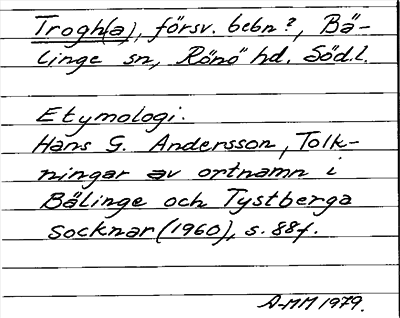 Trogh(a), försv. bebn?, Bä-
linge sn, Rönö hd. Södl.
Etymologi.
Hans G. Andersson, Tolk-
ningar av ortnamn i
Bälinge och Tystberga
socknar (1960), s. 88f.
A-MM 1979.